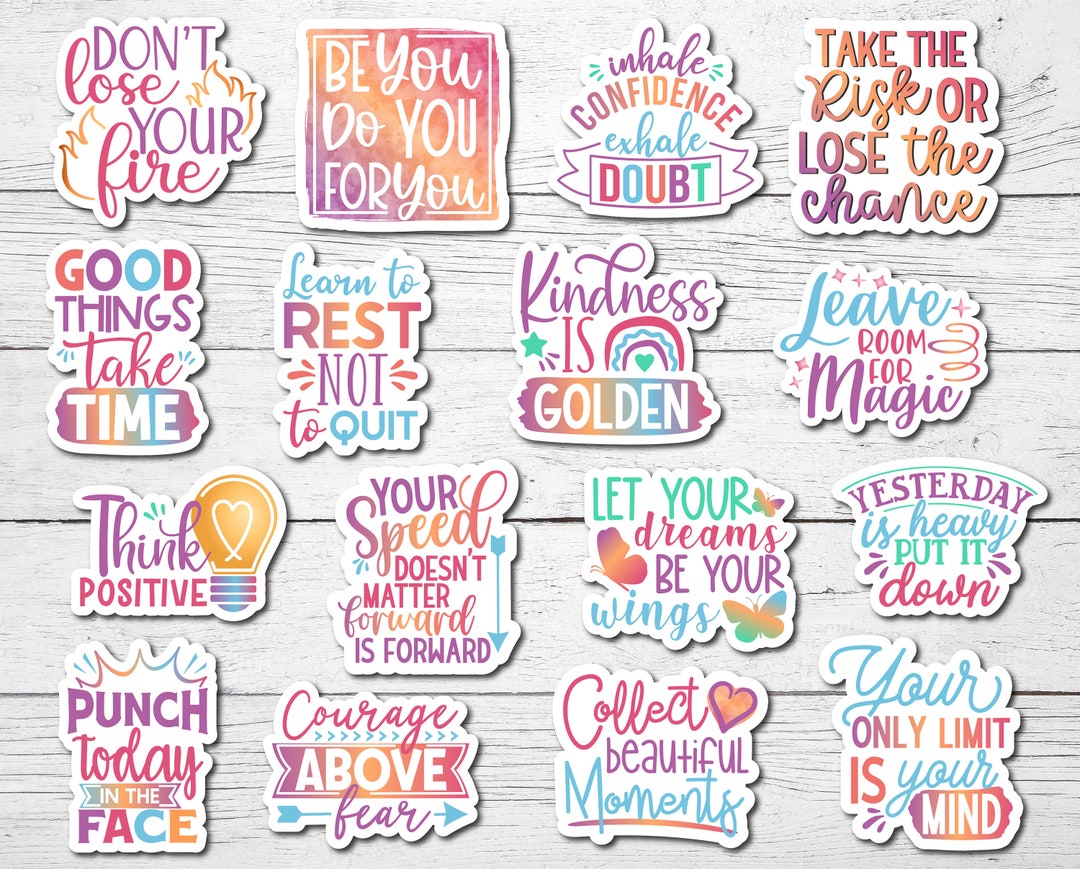 DON'T
lose
YOUR
fire
BE YOU
DO YOU
FOR YOU
inhale
CONFIDENCE
exhale
DOUBT
TAKE THE
Risk OR
LOSE the
chance
GOOD
THINGS
take
TIME
Learn to
REST
NOT
to QUIT
Kindness
IS
GOLDEN
Leave
ROOM
FOR
Magic
Think
POSITIVE
YOUR
Speed
DOESN'T
MATTER
forward
IS FORWARD
LET YOUR
dreams
BE YOUR
wings
YESTERDAY
is heavy
PUT IT
down
PUNCH
Today
IN THE
FACE
Courage
ABOVE
fear
Collect
beautiful
Moments
Your
ONLY LIMIT
IS your
MIND